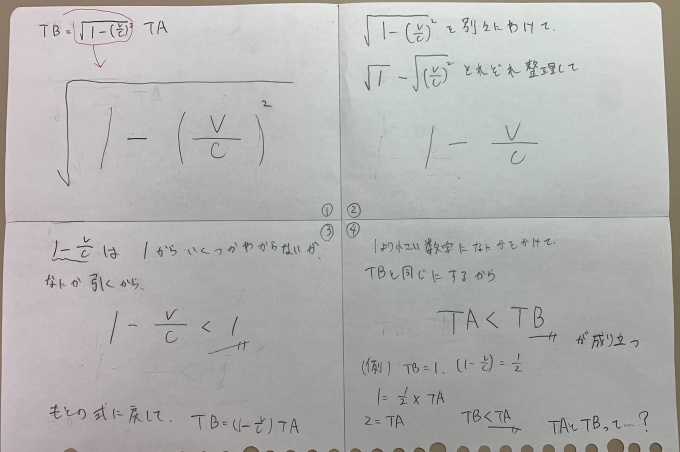 TB = √1-(v/c)² TA
√1-(v/c)²
①
√1-(v/c)² を別々にわけて、
√1 - √(v/c)² それぞれ整理して
1 - v/c
②
③
1-v/c は 1からいくつかわからないが、
なにか引くから、
1 - v/c < 1
もとの式に戻して、 TB=(1-v/c)TA
④
1より小さい数字になにかをかけて、
TBと同じにするから
TA < TB が成り立つ
(例) TB=1, (1-v/c)=1/2
1= 1/2 × TA
2=TA TB<TA TAとTBって…?